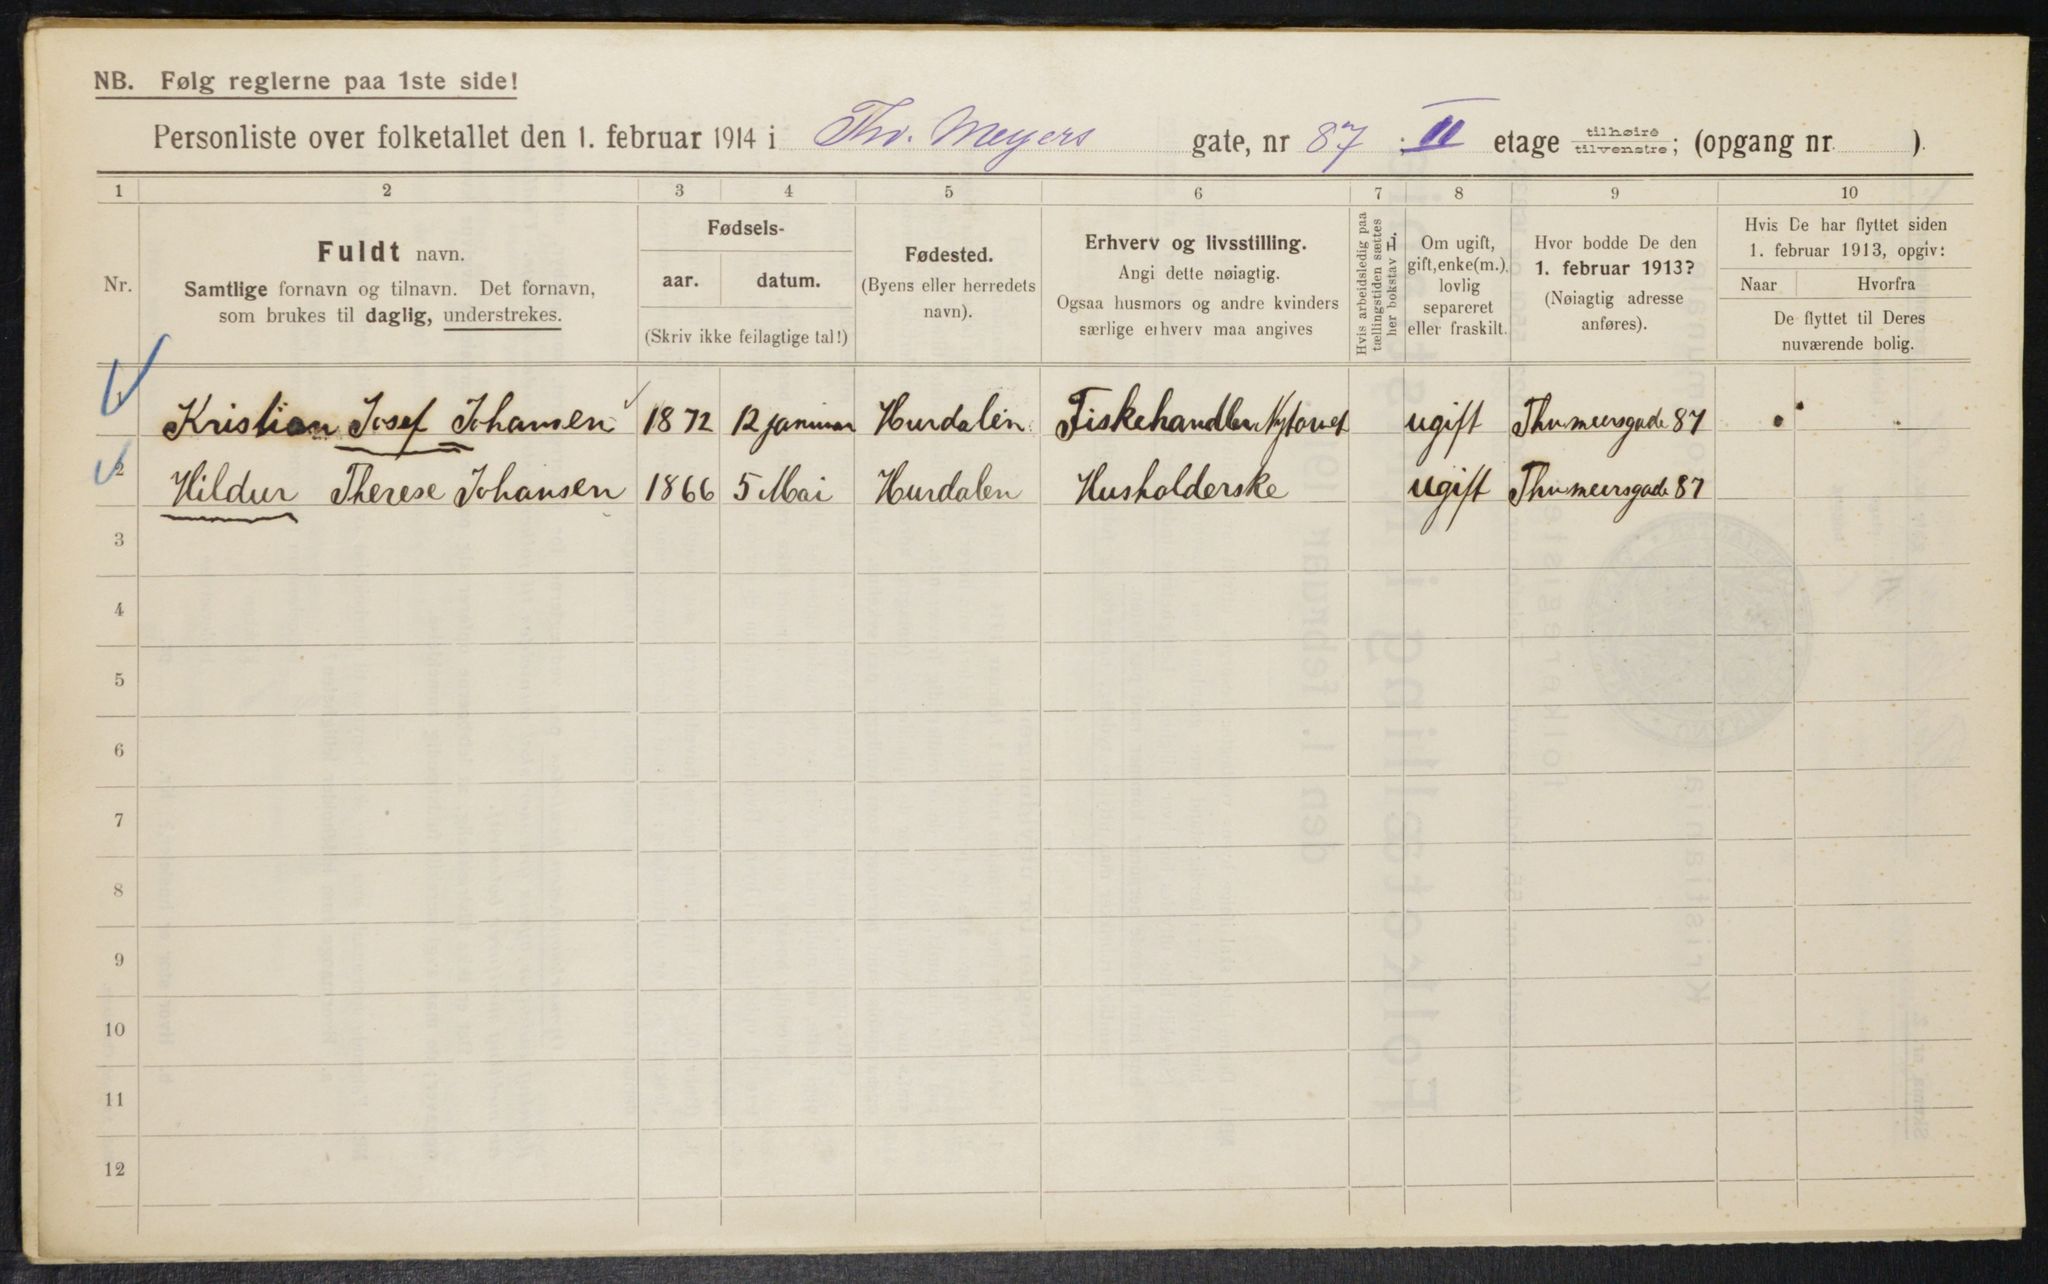 NB. Følg reglerne paa 1ste side!
Personliste over folketallet den 1. februar 1914 i Thv. Meyers gate, nr 87 ; II etage tilhøire tilvenstre; (opgang nr )
1 2 3 4 5 6 7 8 9 10
Nr.
Fuldt navn.
Samtlige fornavn og tilnavn. Det fornavn,
som brukes til daglig, understrekes.
Fødsels-
aar. datum.
(Skriv ikke feilagtige tal!)
Fødested.
(Byens eller herredets
navn).
Erhverv og livsstilling.
Angi dette nøiagtig.
Ogsaa husmors og andre kvinders
særlige erhverv maa angives
Hvis arbeidsledig paa
tællingstiden sættes
her bokstav L.
Om ugift,
gift, enke(m.),
lovlig
separeret
eller fraskilt.
Hvor bodde De den
1. februar 1913?
(Nøiagtig adresse
anføres).
Hvis De har flyttet siden
1. februar 1913, opgiv:
Naar Hvorfra
De flyttet til Deres
nuværende bolig.
1 Kristian Josef Johansen 1872 12 januar Hurdalen Fiskehandler Nytorvet ugift Thv meersgade 87
2 Hildur Therese Johansen 1866 5 Mai Hurdalen Husholderske ugift Thv meersgade 87
3
4
5
6
7
8
9
10
11
12